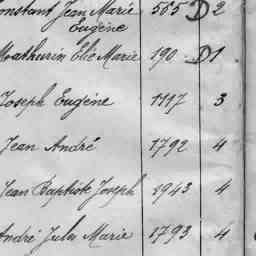 onstant Jean Marie 565 D 2
Eugène
Mathurin Elie Marie 190 D 1
Joseph Eugène 1117 3
Jean André 1792 4
Jean Baptiste Joseph 1943 4
André Jules Marie 1793 4